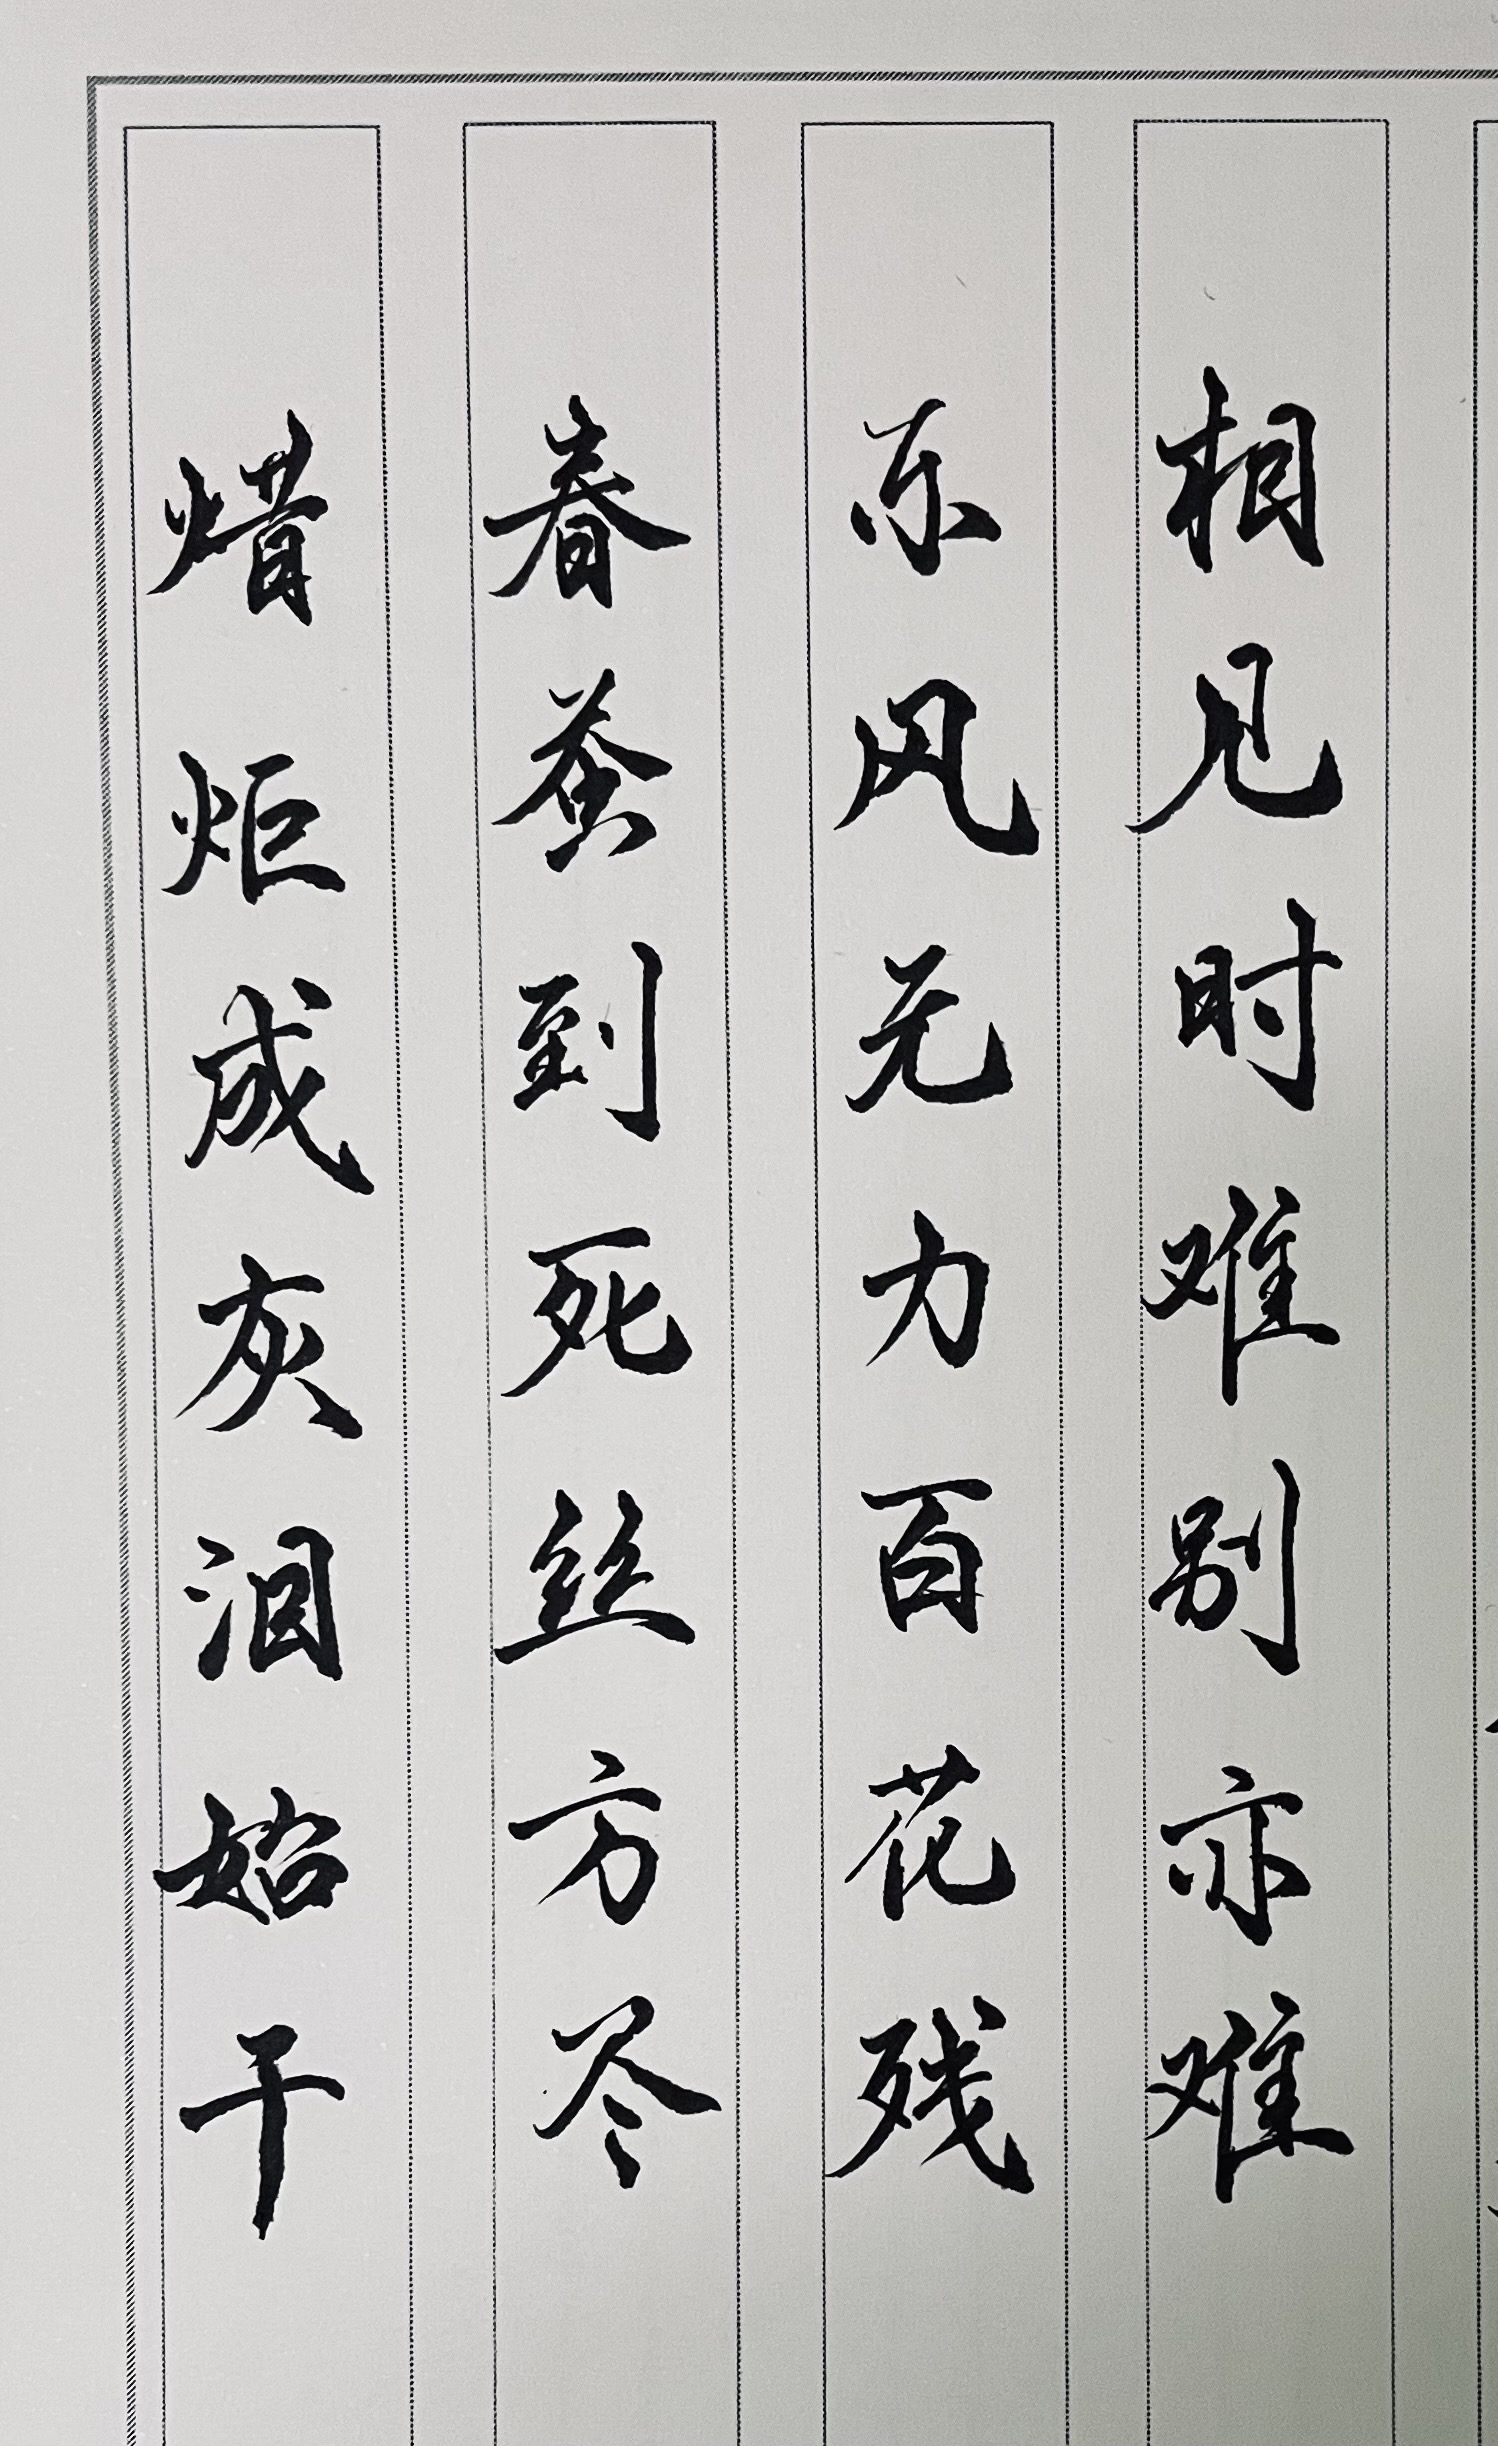 相见时难别亦难
东风无力百花残
春蚕到死丝方尽
焟炬成灰泪始干